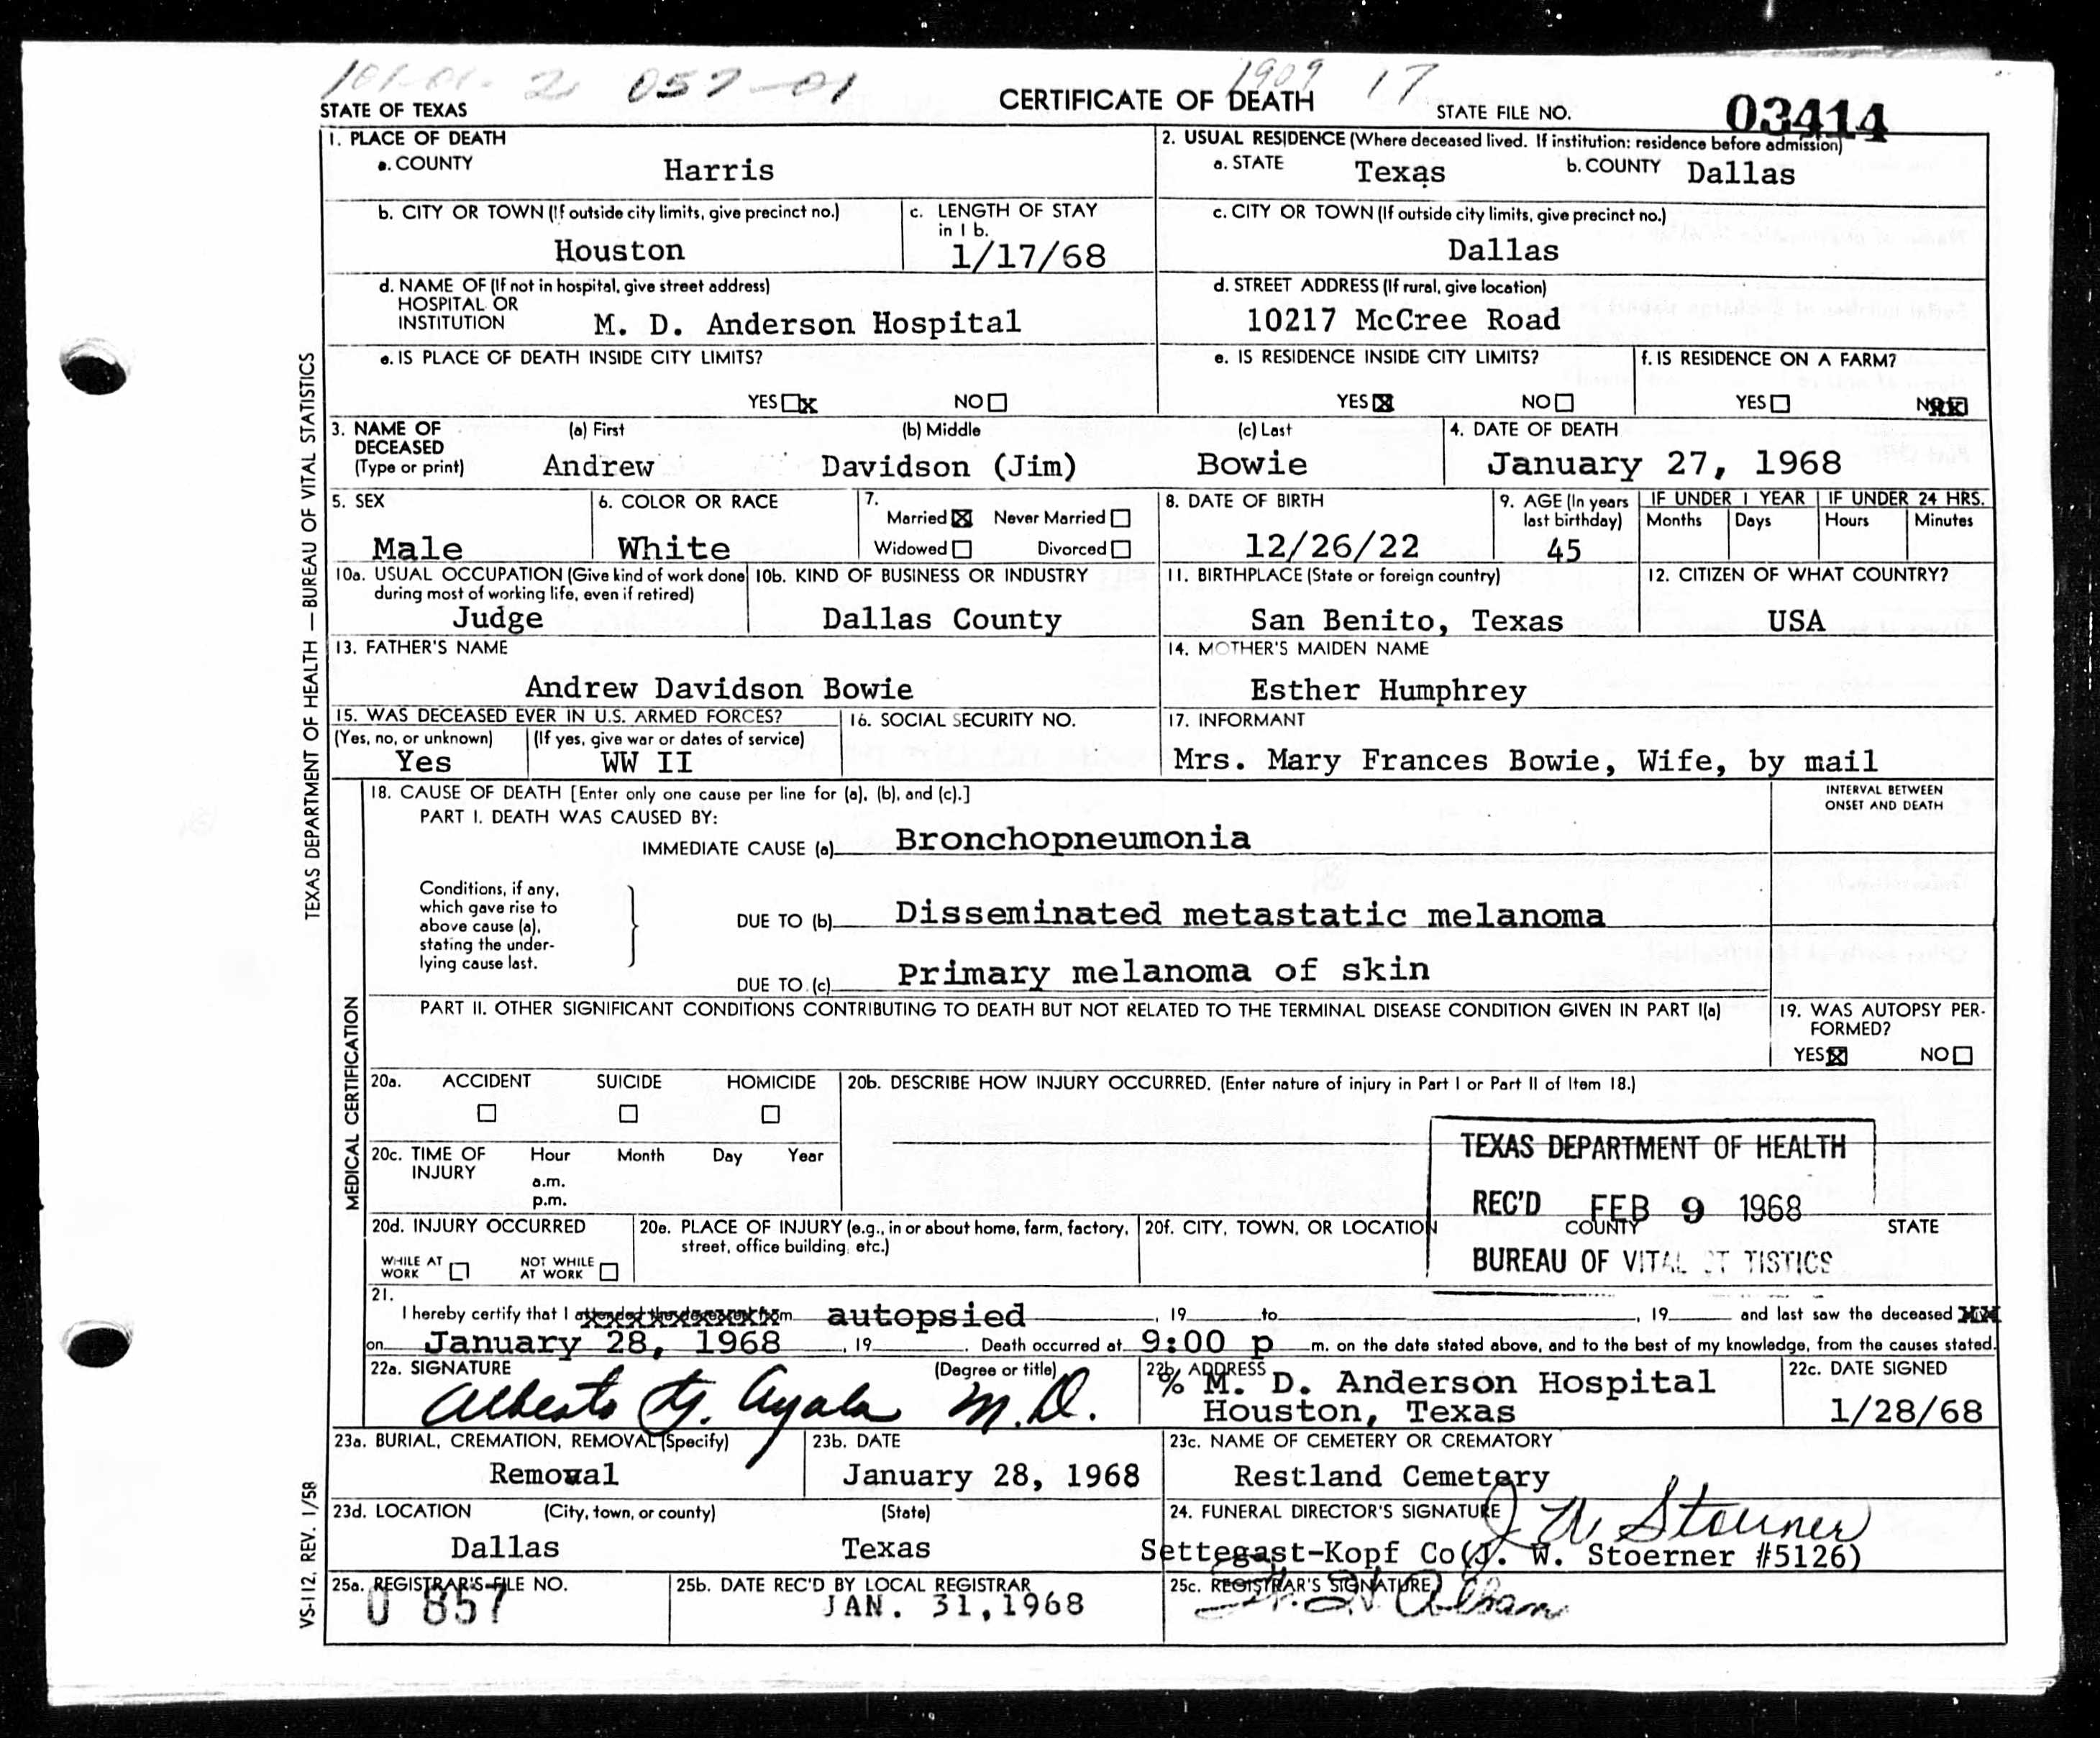 101-01- 2 057-01 1909 17
STATE OF TEXAS CERTIFICATE OF DEATH STATE FILE NO. 03414
TEXAS DEPARTMENT OF HEALTH — BUREAU OF VITAL STATISTICS
1. PLACE OF DEATH
a. COUNTY Harris
2. USUAL RESIDENCE (Where deceased lived. If institution: residence before admission)
a. STATE Texas b. COUNTY Dallas
b. CITY OR TOWN (If outside city limits, give precinct no.) Houston
c. LENGTH OF STAY in 1 b. 1/17/68
c. CITY OR TOWN (If outside city limits, give precinct no.) Dallas
d. NAME OF (If not in hospital, give street address)
HOSPITAL OR
INSTITUTION M. D. Anderson Hospital
d. STREET ADDRESS (If rural, give location)
10217 McCree Road
e. IS PLACE OF DEATH INSIDE CITY LIMITS?
YES x NO
e. IS RESIDENCE INSIDE CITY LIMITS?
YES X NO
f. IS RESIDENCE ON A FARM?
YES NO X
3. NAME OF DECEASED (Type or print)
(a) First Andrew
(b) Middle Davidson (Jim)
(c) Last Bowie
4. DATE OF DEATH
January 27, 1968
5. SEX
Male
6. COLOR OR RACE
White
7. Married X Never Married
Widowed Divorced
8. DATE OF BIRTH
12/26/22
9. AGE (In years last birthday)
45
IF UNDER 1 YEAR
Months Days
IF UNDER 24 HRS.
Hours Minutes
10a. USUAL OCCUPATION (Give kind of work done
during most of working life, even if retired)
Judge
10b. KIND OF BUSINESS OR INDUSTRY
Dallas County
11. BIRTHPLACE (State or foreign country)
San Benito, Texas
12. CITIZEN OF WHAT COUNTRY?
USA
13. FATHER'S NAME
Andrew Davidson Bowie
14. MOTHER'S MAIDEN NAME
Esther Humphrey
15. WAS DECEASED EVER IN U.S. ARMED FORCES?
(Yes, no, or unknown) (If yes, give war or dates of service)
Yes WW II
16. SOCIAL SECURITY NO.
17. INFORMANT
Mrs. Mary Frances Bowie, Wife, by mail
MEDICAL CERTIFICATION
18. CAUSE OF DEATH [Enter only one cause per line for (a), (b), and (c).]
INTERVAL BETWEEN
ONSET AND DEATH
PART I. DEATH WAS CAUSED BY:
IMMEDIATE CAUSE (a) Bronchopneumonia
Conditions, if any,
which gave rise to
above cause (a),
stating the under-
lying cause last.
DUE TO (b) Disseminated metastatic melanoma
DUE TO (c) Primary melanoma of skin
PART II. OTHER SIGNIFICANT CONDITIONS CONTRIBUTING TO DEATH BUT NOT RELATED TO THE TERMINAL DISEASE CONDITION GIVEN IN PART I(a)
19. WAS AUTOPSY PER-
FORMED?
YES X NO
20a. ACCIDENT SUICIDE HOMICIDE
20b. DESCRIBE HOW INJURY OCCURRED. (Enter nature of injury in Part I or Part II of Item 18.)
20c. TIME OF INJURY Hour Month Day Year
a.m.
p.m.
20d. INJURY OCCURRED
WHILE AT WORK NOT WHILE AT WORK
20e. PLACE OF INJURY (e.g., in or about home, farm, factory,
street, office building, etc.)
20f. CITY, TOWN, OR LOCATION COUNTY STATE
TEXAS DEPARTMENT OF HEALTH
REC'D FEB 9 1968
BUREAU OF VITAL ST TISTICS
21.
I hereby certify that I attended the deceased from autopsied , 19 to , 19 and last saw the deceased
on January 28, 1968 , 19 . Death occurred at 9:00 p m. on the date stated above, and to the best of my knowledge, from the causes stated.
22a. SIGNATURE (Degree or title)
Alberto G. Ayala M.D.
22b. ADDRESS
% M. D. Anderson Hospital
Houston, Texas
22c. DATE SIGNED
1/28/68
23a. BURIAL, CREMATION, REMOVAL (Specify)
Removal
23b. DATE
January 28, 1968
23c. NAME OF CEMETERY OR CREMATORY
Restland Cemetery
23d. LOCATION (City, town, or county) (State)
Dallas Texas
24. FUNERAL DIRECTOR'S SIGNATURE J W Stoerner
Settegast-Kopf Co(J. W. Stoerner #5126)
25a. REGISTRAR'S FILE NO.
0 857
25b. DATE REC'D BY LOCAL REGISTRAR
JAN. 31, 1968
25c. REGISTRAR'S SIGNATURE
VS-112, REV. 1/58